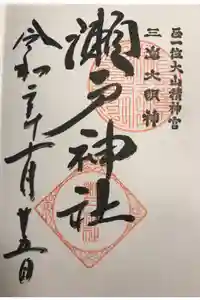 正一位大山積神宮
三島大明神
瀬戸神社
令和二年十一月廿五日